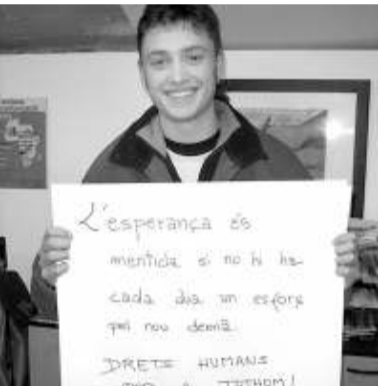 L'esperança és
mentida si no hi ha
cada dia un esforç
pel nou demà.
DRETS HUMANS
PER A TOTHOM!